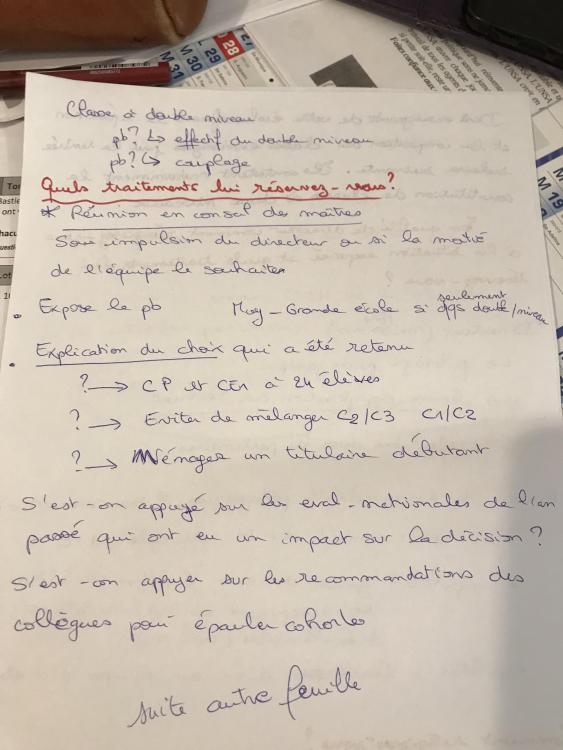 Classe à double niveau
pb? ↳ effectif du double niveau
pb? ↳ couplage
Quels traitements lui réservez-vous?
* Réunion en conseil des maîtres
Sous impulsion du directeur ou si la moitié
de l'équipe le souhaite
• Expose le pb Moy-Grande école si seulement qqs double/niveau
• Explication du choix qui a été retenu
? → CP et CE1 à 24 élèves
? → Eviter de mélanger C2/C3 C1/C2
? → Ménager un titulaire débutant
S'est-on appuyé sur les eval-nationales de l'an
passé qui ont eu un impact sur la décision?
S'est-on appuyer sur les recommandations des
collègues pour épauler cohortes
suite autre feuille
27
28
29
30
M 31
M 19